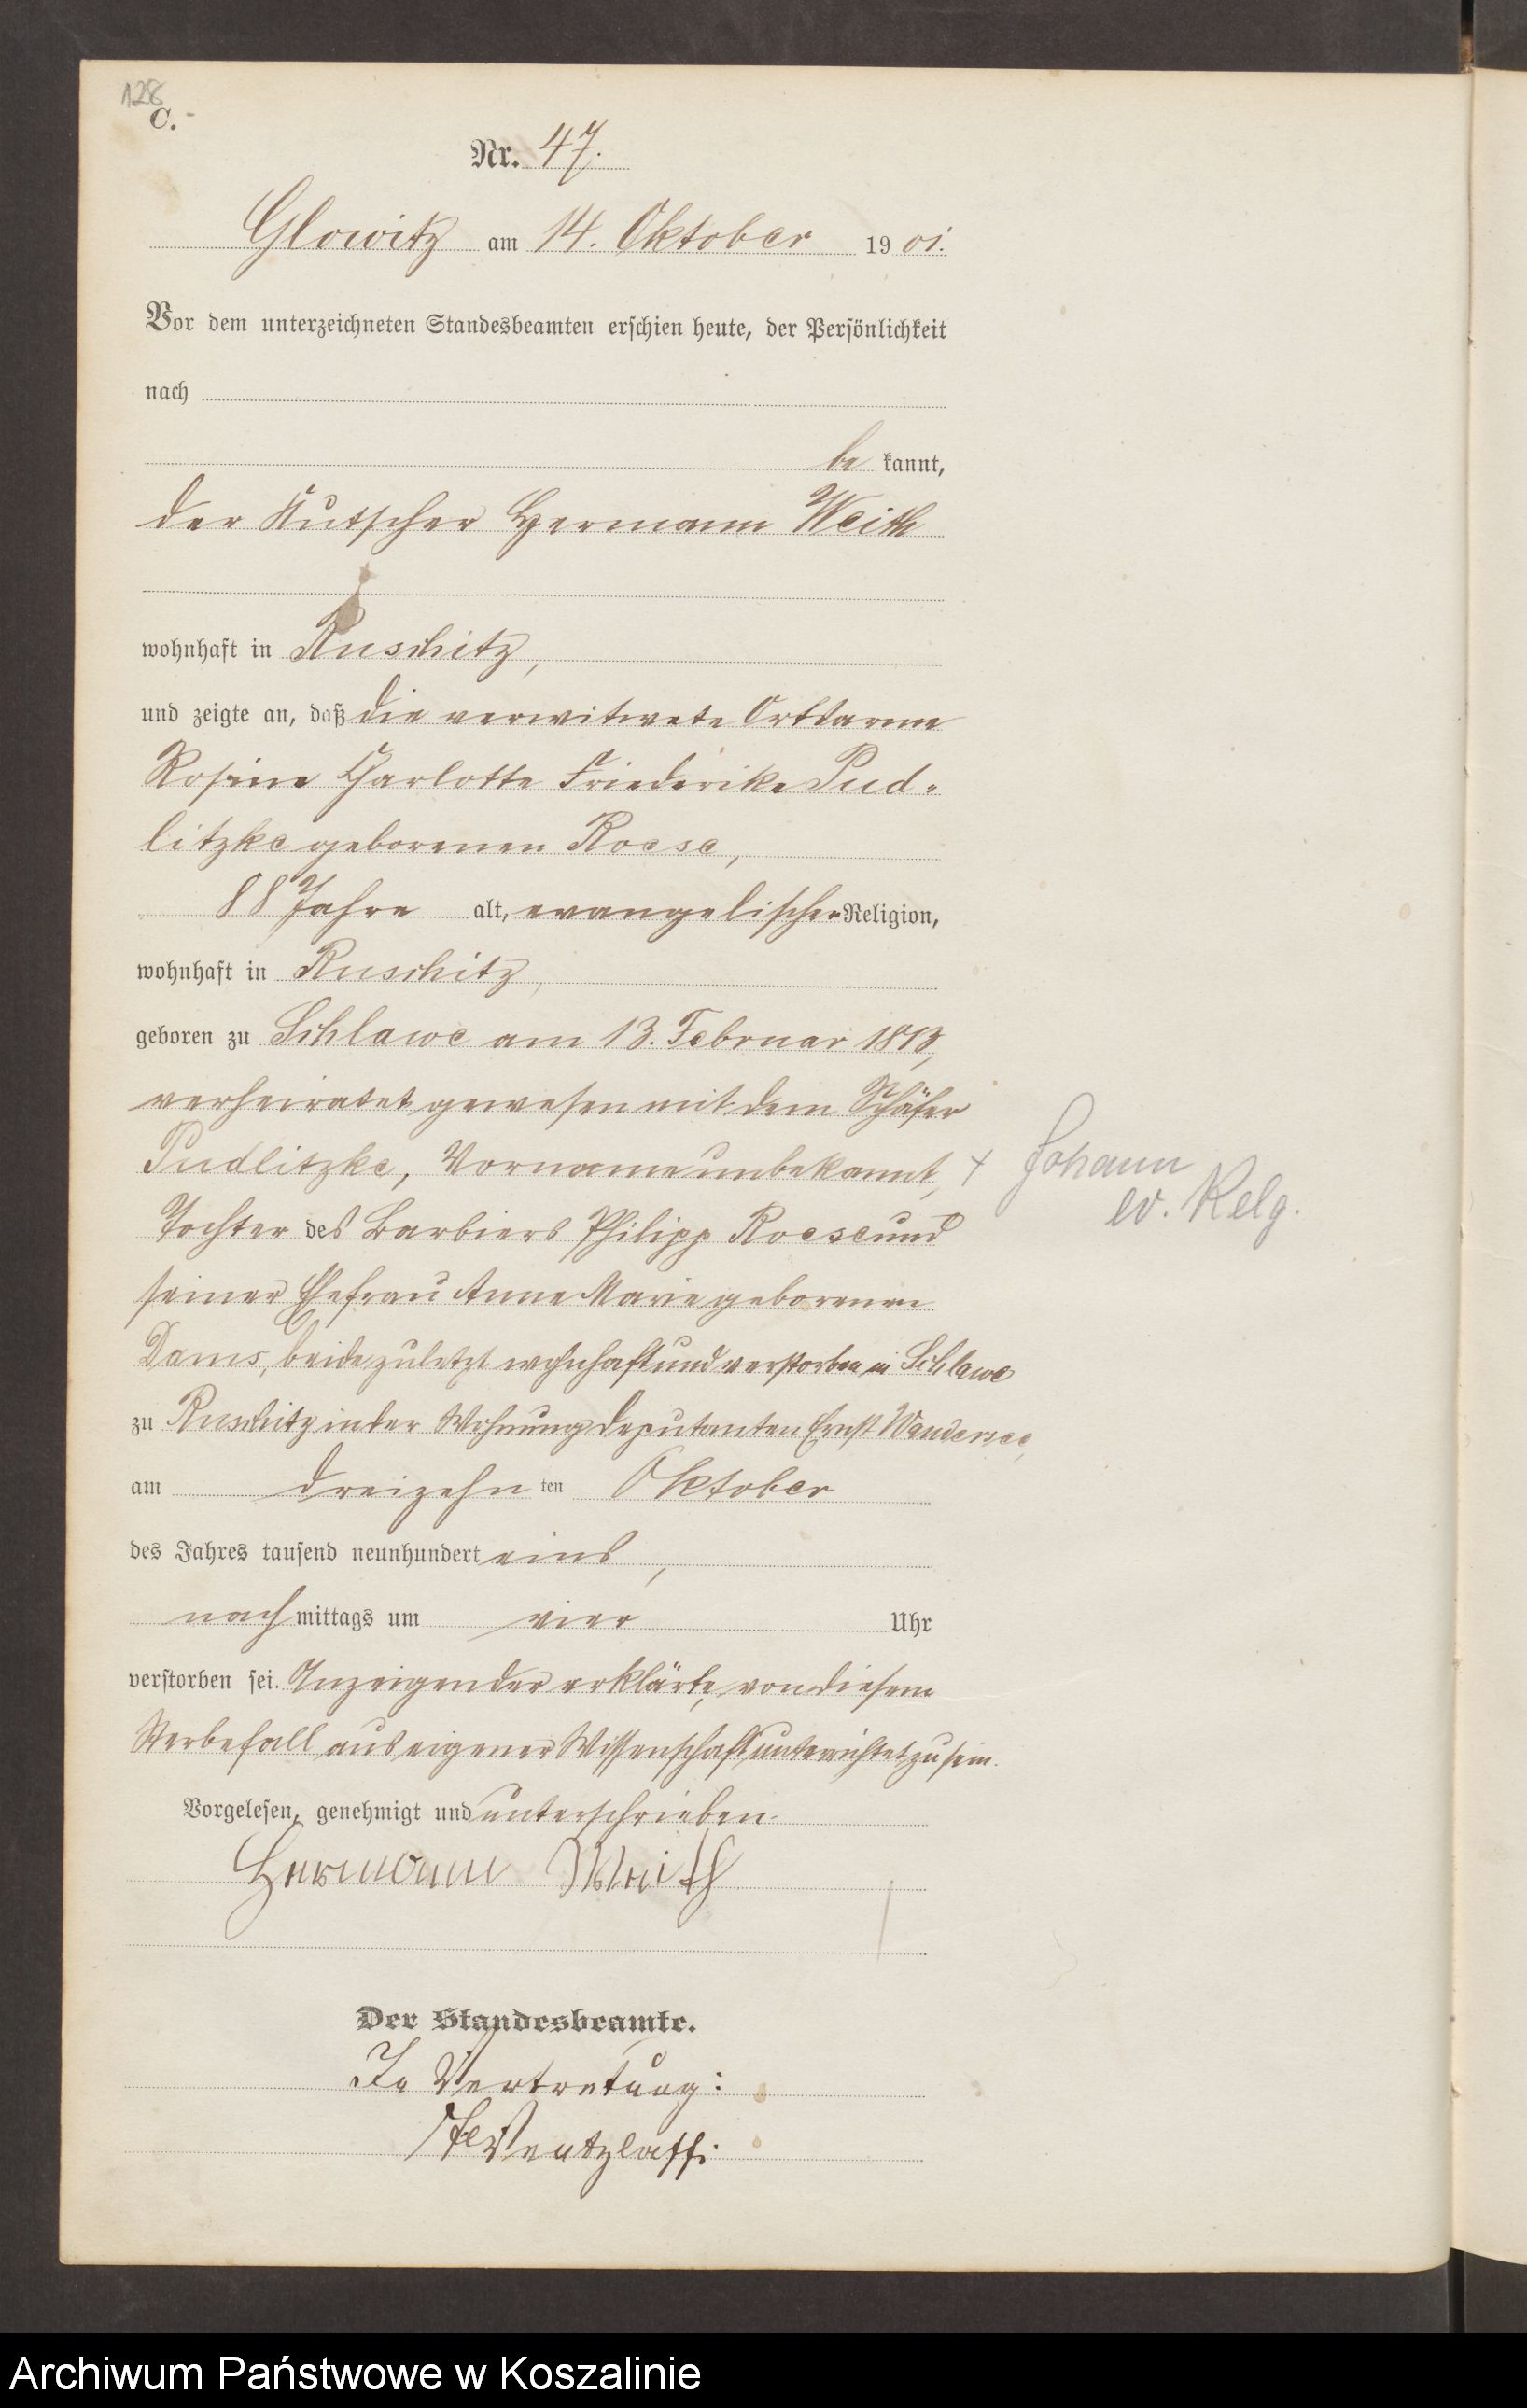 128
C.
Nr. 47.
Glowitz am 14. Oktober 1901.
Vor dem unterzeichneten Standesbeamten erschien heute, der Persönlichkeit
nach
be kannt,
der Kutscher Hermann Weith
wohnhaft in Ruschitz,
und zeigte an, daß die verwitwete Ortsarme
Rosine Charlotte Friederike Pud-
litzke geborenen Roese,
88 Jahre alt, evangelischer Religion,
wohnhaft in Ruschitz,
geboren zu Schlawe am 13. Februar 1813,
verheiratet gewesen mit dem Schäfer
Pudlitzke, Vorname unbekannt, + Johann
ev. Relg.
Tochter des Barbiers Philipp Roese und
seiner Ehefrau Anne Marie geborenen
Dams, beide zuletzt wohnhaft und verstorben in Schlawe
zu Ruschitz in der Wohnung Deputanten Ernst Wandersee,
am dreizehn ten Oktober
des Jahres tausend neunhundert eins,
nach mittags um vier Uhr
verstorben sei. Anzeigender erklärte, von diesem
Sterbefall aus eigener Wissenschaft unterrichtet zu sein.
Vorgelesen, genehmigt und unterschrieben.
Hermann Weith
Der Standesbeamte.
In Vertretung:
Wentzlaff.
Archiwum Państwowe w Koszalinie